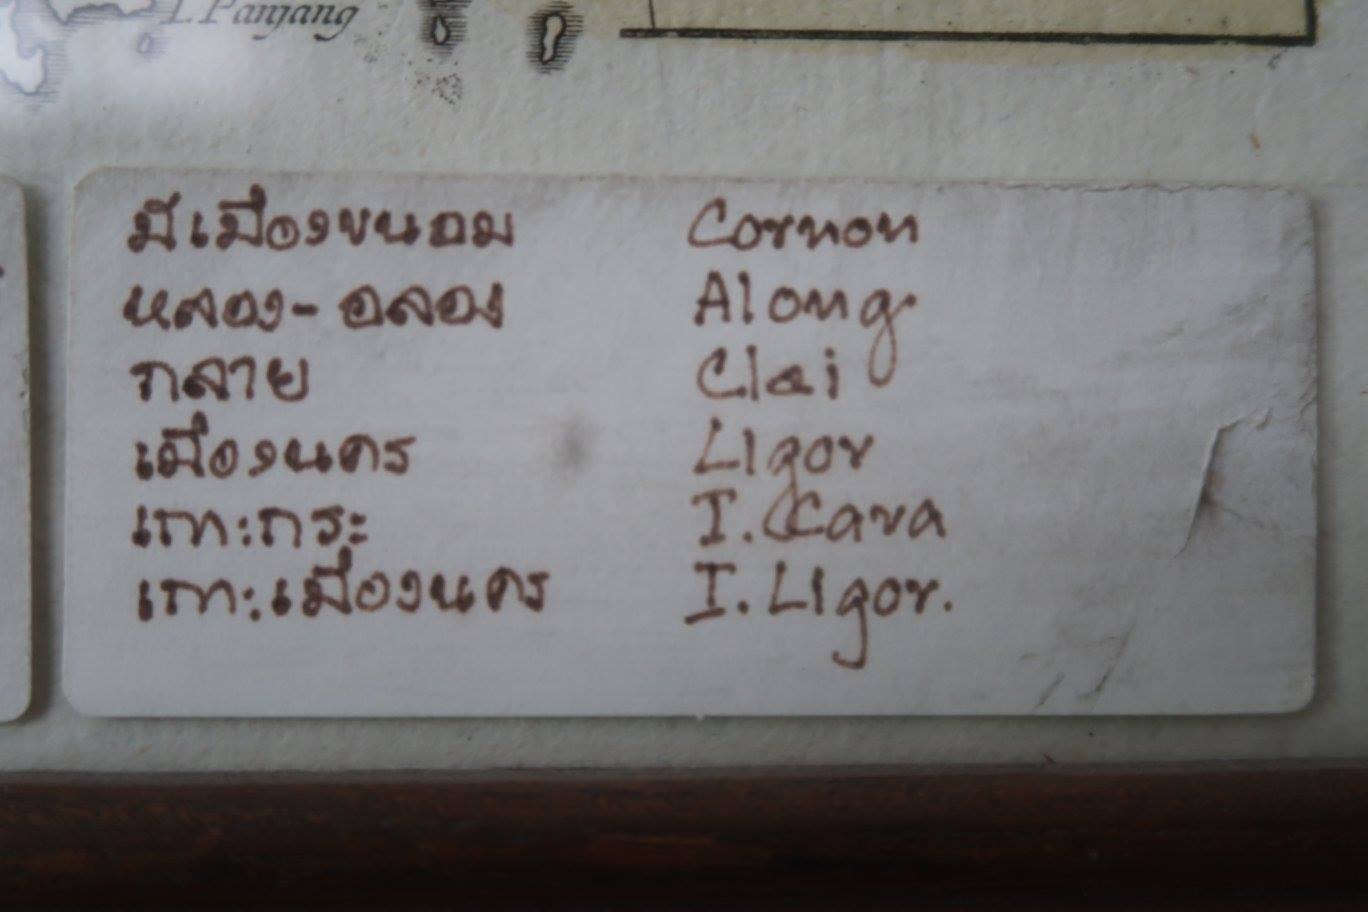 I. Panjang
มีเมืองขนอม Cornon
หลอง-อลอง Along.
กลาย Clai
เมืองนคร Ligor
เกาะกระ I. Cara
เกาะเมืองนคร I. Ligor.